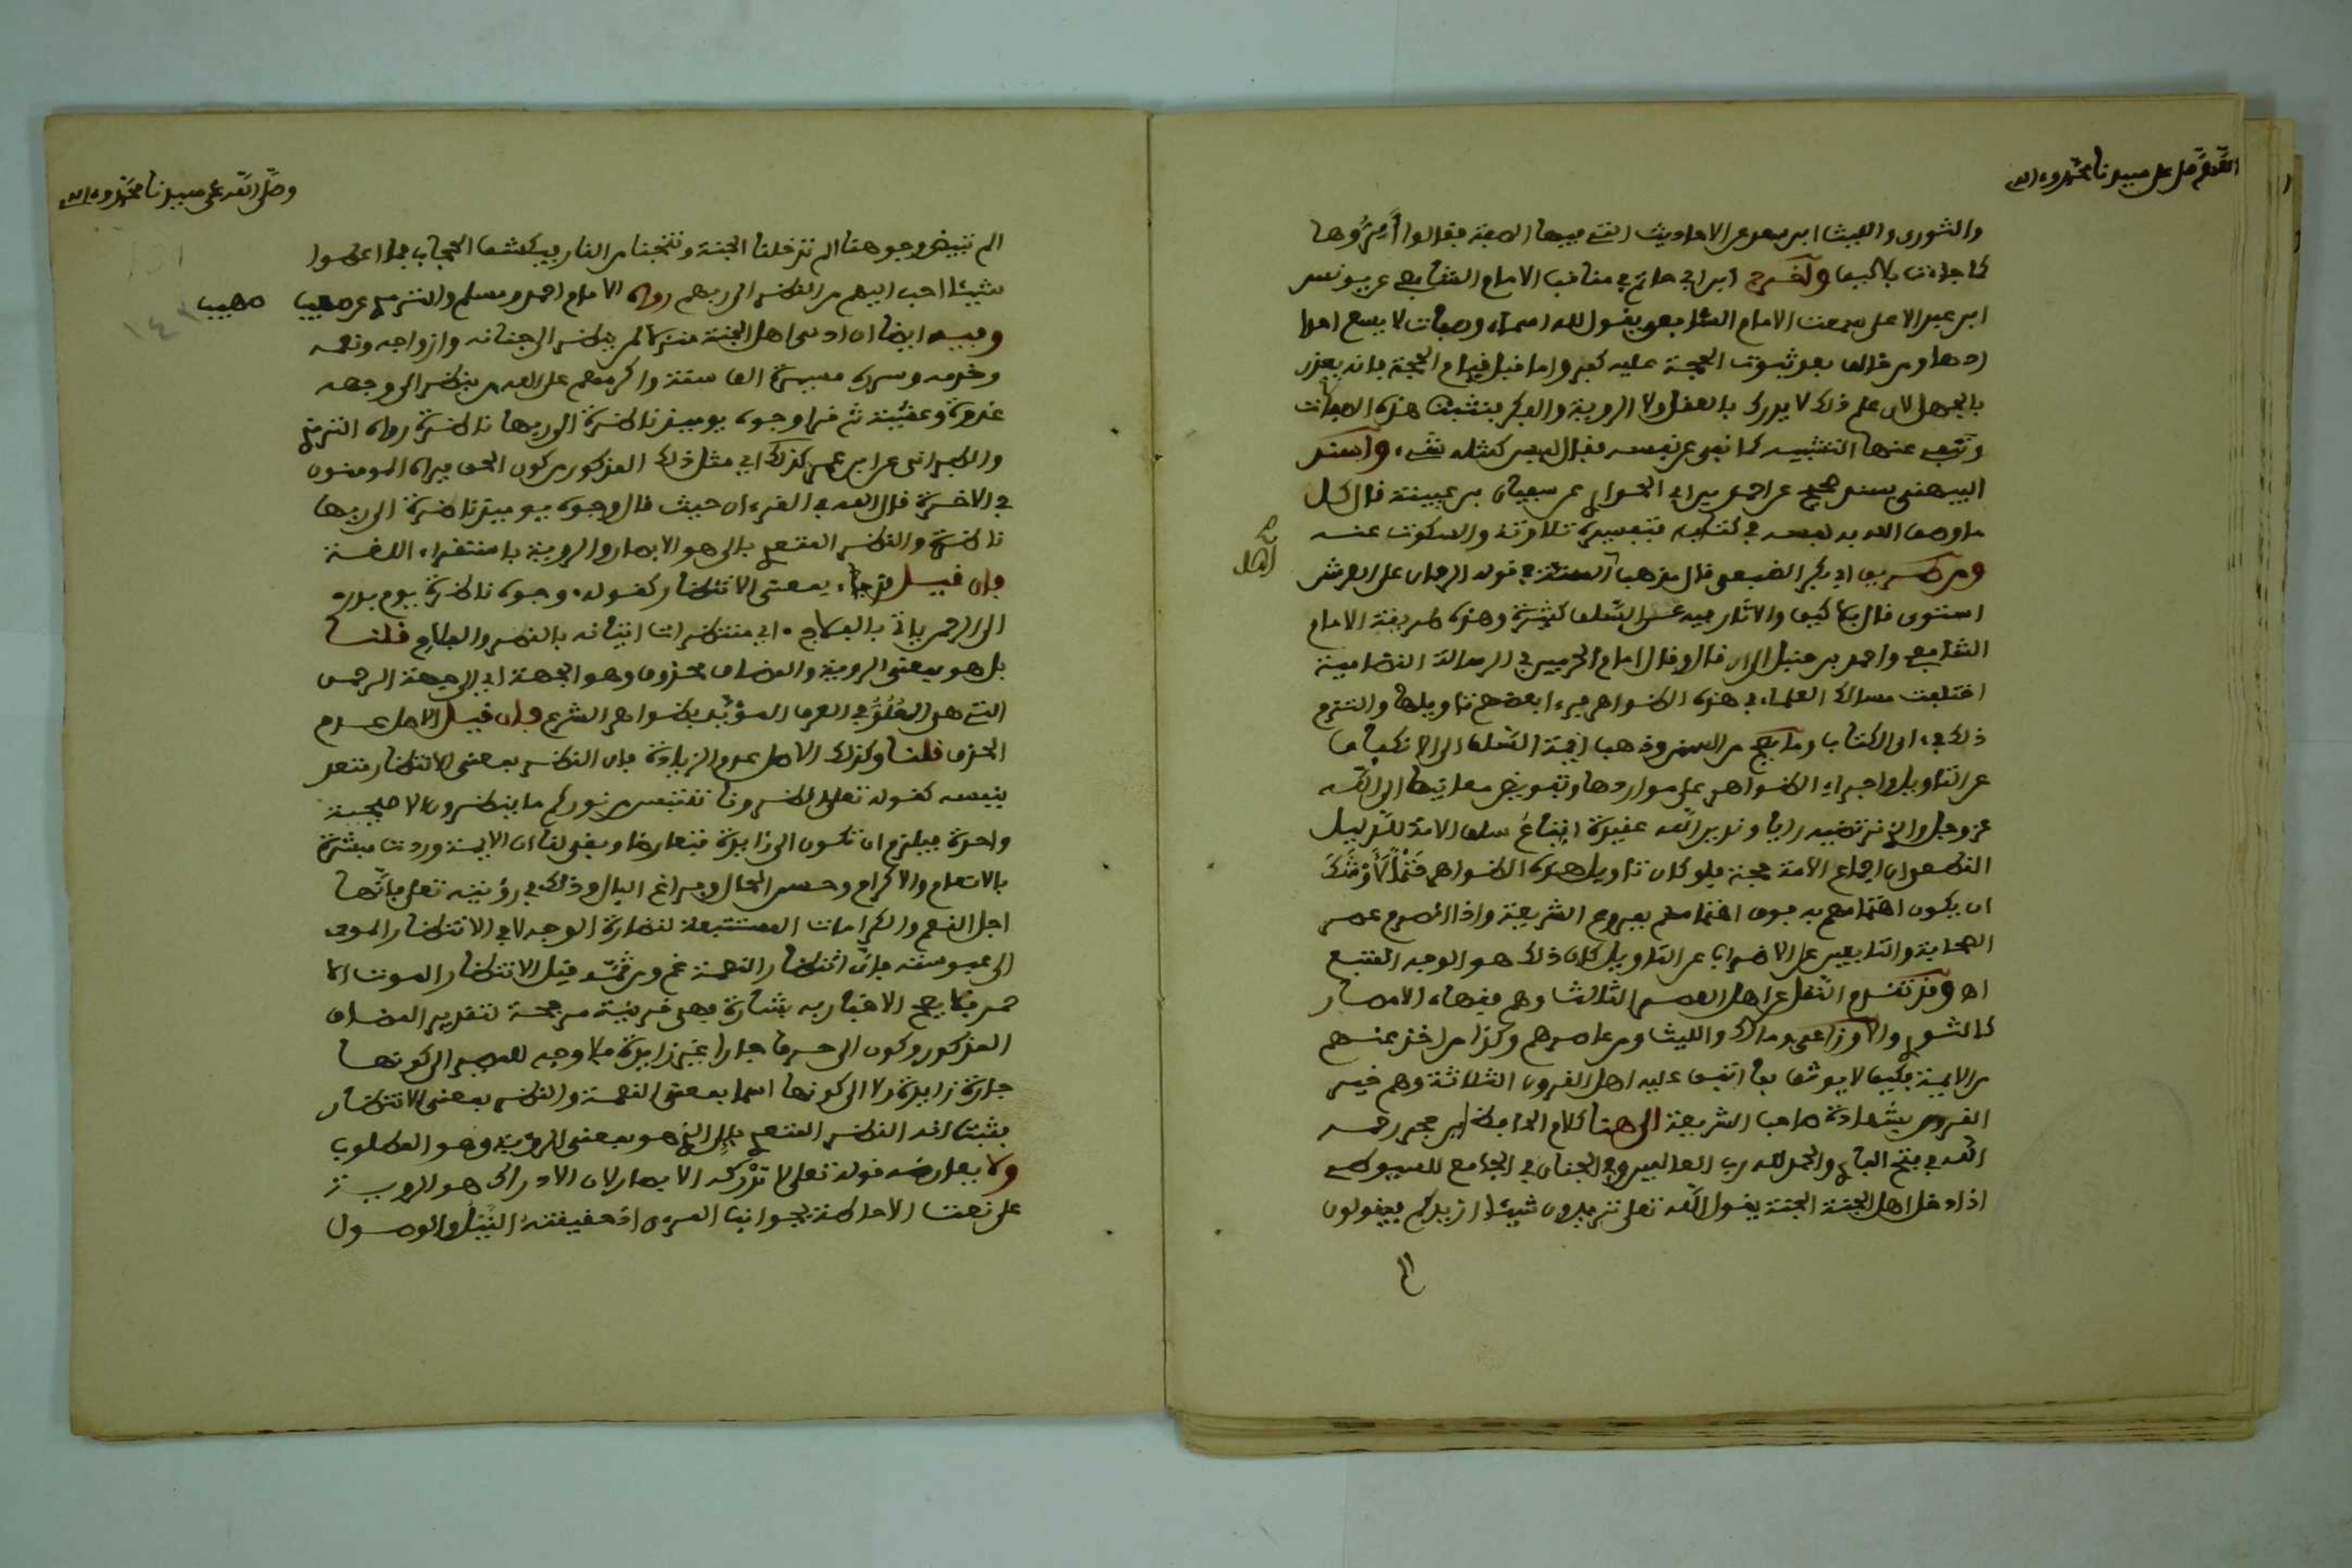 اللهم صل على سيدنا محمد وءاله
والثورى والليث ابن سعد عن الاحاديث التي فيها الصفة فقالوا أَمِرُّوها
كما جاءت بلا كيف وأخرج ابن ابي حاتم في مناقب الامام الشافعي عن يونس
ابن عبد الاعلى سمعت الامام الشافعي يقول لله اسماء وصفات لا يسع احدا
ردها ومن خالف بعد ثبوت الحجة عليه كفر واما قبل قيام الحجة فانه يعذر
بالجهل لان علم ذلك لا يدرك بالعقل ولا الروية والفكر فنثبت هذه الصفات
وننفي عنها التشبيه كما نفى عن نفسه فقال ليس كمثله شيء وأسند
البيهقي بسند صحيح عن احمد بن ابي الحوارى عن سفيان بن عيينة قال كل
ما وصف الله به نفسه في كتابه فتفسيره تلاوته والسكوت عنه
ومن طريق ابي بكر الضبعي قال مذهب اهل السنة في قوله الرحمان على العرش
اهل
استوى قال بلا كيف والاثار فيه عن السلف كثيرة وهذه طريقة الامام
الشافعي واحمد بن حنبل الى ان قال وقال امام الحرمين في الرسالة النظامية
اختلفت مسالك العلماء في هذه الظواهر فرءا بعضهم تاويلها والتزم
ذلك في ءاى الكتاب وما يصح من السنن وذهب ايمة السلف الى الانكفاف
عن التاويل واجراء الظواهر على مواردها وتفويض معانيها الى الله
عز وجل والذى نرتضيه رايا وندين الله عقيدة اتباع سلف الامة للدليل
القاطع ان اجماع الامة حجة فلو كان تاويل هذه الظواهر حتما لأوشك
ان يكون اهتمامهم به فوق اهتمامهم بفروع الشريعة واذا انصرم عصر
الصحابة والتابعين على الاضراب عن التاويل كان ذلك هو الوجه المتبع
اهـ وقد تقدم النقل عن اهل العصر الثالث وهم فقهاء الامصار
كالثورى والاوزاعى ومالك والليث ومن عاصرهم وكذا من اخذ عنهم
من الايمة فكيف لا يوثق بما اتفق عليه اهل القرون الثلاثة وهم خير
القرون بشهادة صاحب الشريعة الى هنا كلام الحافظ ابن حجر رحمه
الله في فتح البارى والحمد لله رب العالمين وفي الجنان في الجامع للسيوطي
اذا دخل اهل الجنة الجنة يقول الله تعلى تريدون شيئا ازيدكم فيقولون
الم
وصلى الله على سيدنا محمد وءاله
الم تبيض وجوهنا الم تدخلنا الجنة وتنجنا من النار فيكشف الحجاب فما اعطوا
شيئا احب اليهم من النظر الى ربهم رواه الامام احمد ومسلم والترمذي عن صهيب
صهيب
١٤٣
وفيه ايضا ان ادنى اهل الجنة منزلة لمن ينظر الى جنانه وازواجه ونعمه
وخدمه وسرره مسيرة الف سنة واكرمهم على الله من ينظر الى وجهه
غدوة وعشية ثم قرا وجوه يوميذ ناضرة الى ربها ناظرة رواه الترمذي
والطبراني عن ابن عمر كذلك اي مثل ذلك المذكور من كون الحق يراه المومنون
في الاخرة قال الله في القرءان حيث قال وجوه يوميذ ناضرة الى ربها
ناظرة والنظر المتعدى بالى هو الابصار والروية باستقراء اللغة
فان قيل قد جاء بمعنى الانتظار كقوله وجوه ناظرة يوم بدر
الى الرحمن ياتي بالفلاح اي منتظرات اتيانه بالنصر والفلاح قلنا
بل هو بمعنى الروية والمضاف محذوف وهو الجهة اي الى جهة الرحمن
التي هي العُلُوُّ في العرف المؤيد بظواهر الشرع فان قيل الاصل عدم
الحذف قلنا وكذلك الاصل عدم الزيادة فان النظر بمعنى الانتظار متعد
بنفسه كقوله تعلى انظرونا نقتبس من نوركم ما ينظرون الا صيحة
واحدة فيلزم ان تكون الى زايدة فتعارضا وبقي لنا ان الاية وردت مبشرة
بالانعام والاكرام وحسن الحال وفراغ البال وذلك في رؤيته تعلى فانها
اجل النعم والكرامات المستتبعة لنضارة الوجه لا في الانتظار المودى
الى عبوسته فان انتظار النعمة غم ومن ثمت قيل الانتظار الموت الا
حمر فلا يصح الاخبار به بشارة فهي قرينة مرجحة لتقدير المضاف
المذكور وكون الى حرفا جارا غير زايدة فلا وجه للعدول الى كونها
جارة زايدة ولا الى كونها اسما بمعنى النعمة والنظر بمعنى الانتظار
فثبت انه النظر المتعدى بإلى الذي هو بمعنى الرؤية وهو المطلوب
ولا يعارضه قوله تعلى لا تدركه الابصار لان الادراك هو الروية
على نعت الاحاطة بجوانب المرءى اذ حقيقته النيل والوصول